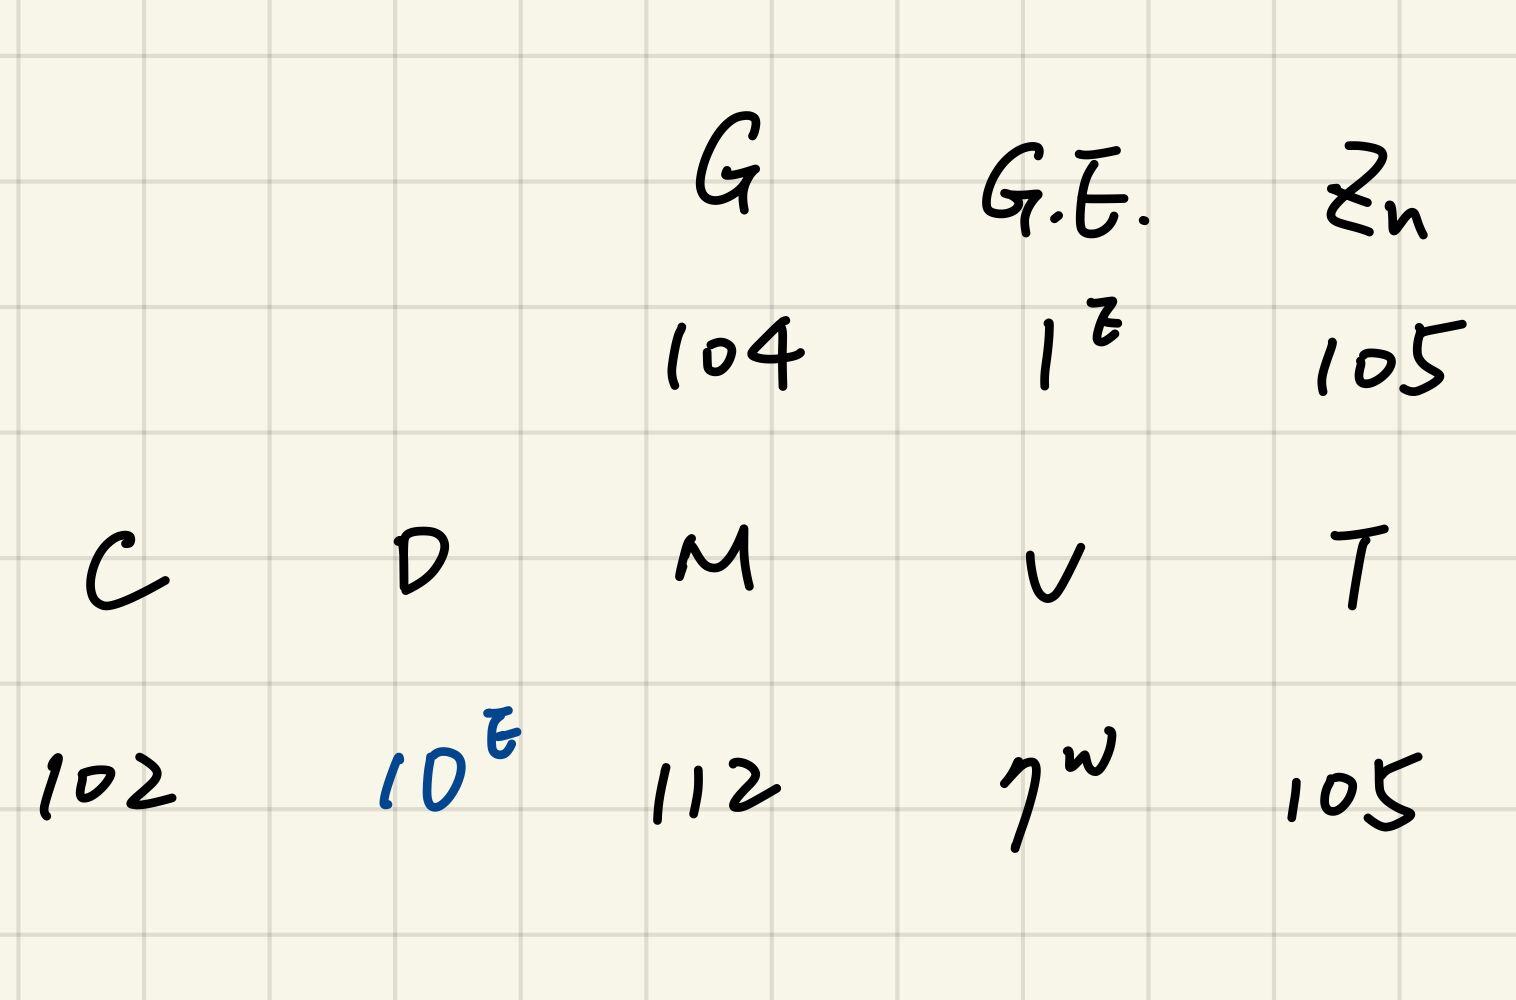 G G.E. Zn
104 1ᴱ 105
C D M V T
102 10ᴱ 112 7ᵂ 105